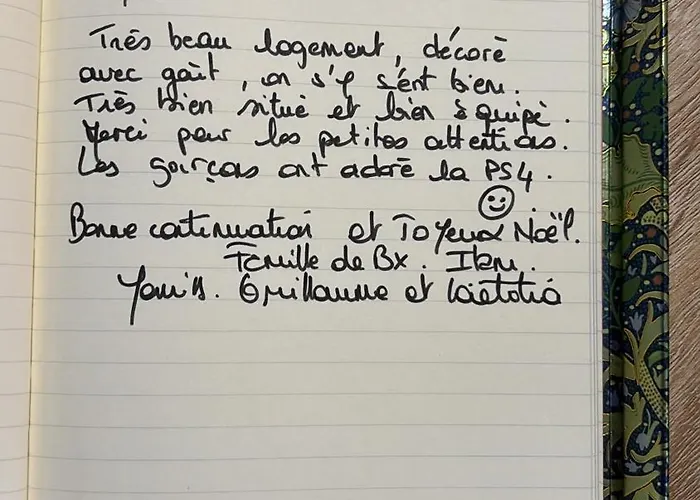 Très beau logement, décoré
avec goût, on s'y sent bien.
Très bien situé et bien équipé.
Merci pour les petites attentions.
Les garçons ont adoré la PS4.
Bonne continuation et Joyeux Noël.
Famille de Bx.
Guillaume et Laetitia